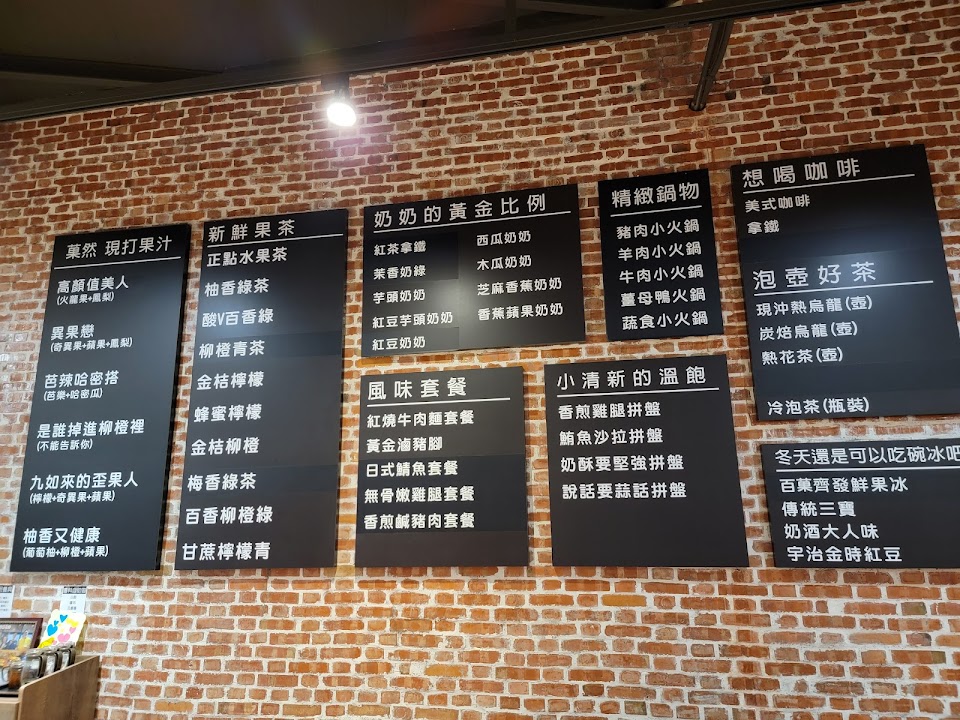 菓然 現打果汁
高顏值美人
(火龍果+鳳梨)
異果戀
(奇異果+蘋果+鳳梨)
芭辣哈密搭
(芭樂+哈密瓜)
是誰掉進柳橙裡
(不能告訴你)
九如來的歪果人
(檸檬+奇異果+蘋果)
柚香又健康
(葡萄柚+柳橙+蘋果)
新鮮果茶
正點水果茶
柚香綠茶
酸V百香綠
柳橙青茶
金桔檸檬
蜂蜜檸檬
金桔柳橙
梅香綠茶
百香柳橙綠
甘蔗檸檬青
奶奶的黃金比例
紅茶拿鐵
茉香奶綠
芋頭奶奶
紅豆芋頭奶奶
紅豆奶奶
西瓜奶奶
木瓜奶奶
芝麻香蕉奶奶
香蕉蘋果奶奶
精緻鍋物
豬肉小火鍋
羊肉小火鍋
牛肉小火鍋
薑母鴨火鍋
蔬食小火鍋
想喝咖啡
美式咖啡
拿鐵
泡壺好茶
現沖熱烏龍(壺)
炭焙烏龍(壺)
熱花茶(壺)
冷泡茶(瓶裝)
風味套餐
紅燒牛肉麵套餐
黃金滷豬腳
日式鯖魚套餐
無骨嫩雞腿套餐
香煎鹹豬肉套餐
小清新的溫飽
香煎雞腿拼盤
鮪魚沙拉拼盤
奶酥要堅強拼盤
說話要蒜話拼盤
冬天還是可以吃碗冰吧
百菓齊發鮮果冰
傳統三寶
奶酒大人味
宇治金時紅豆